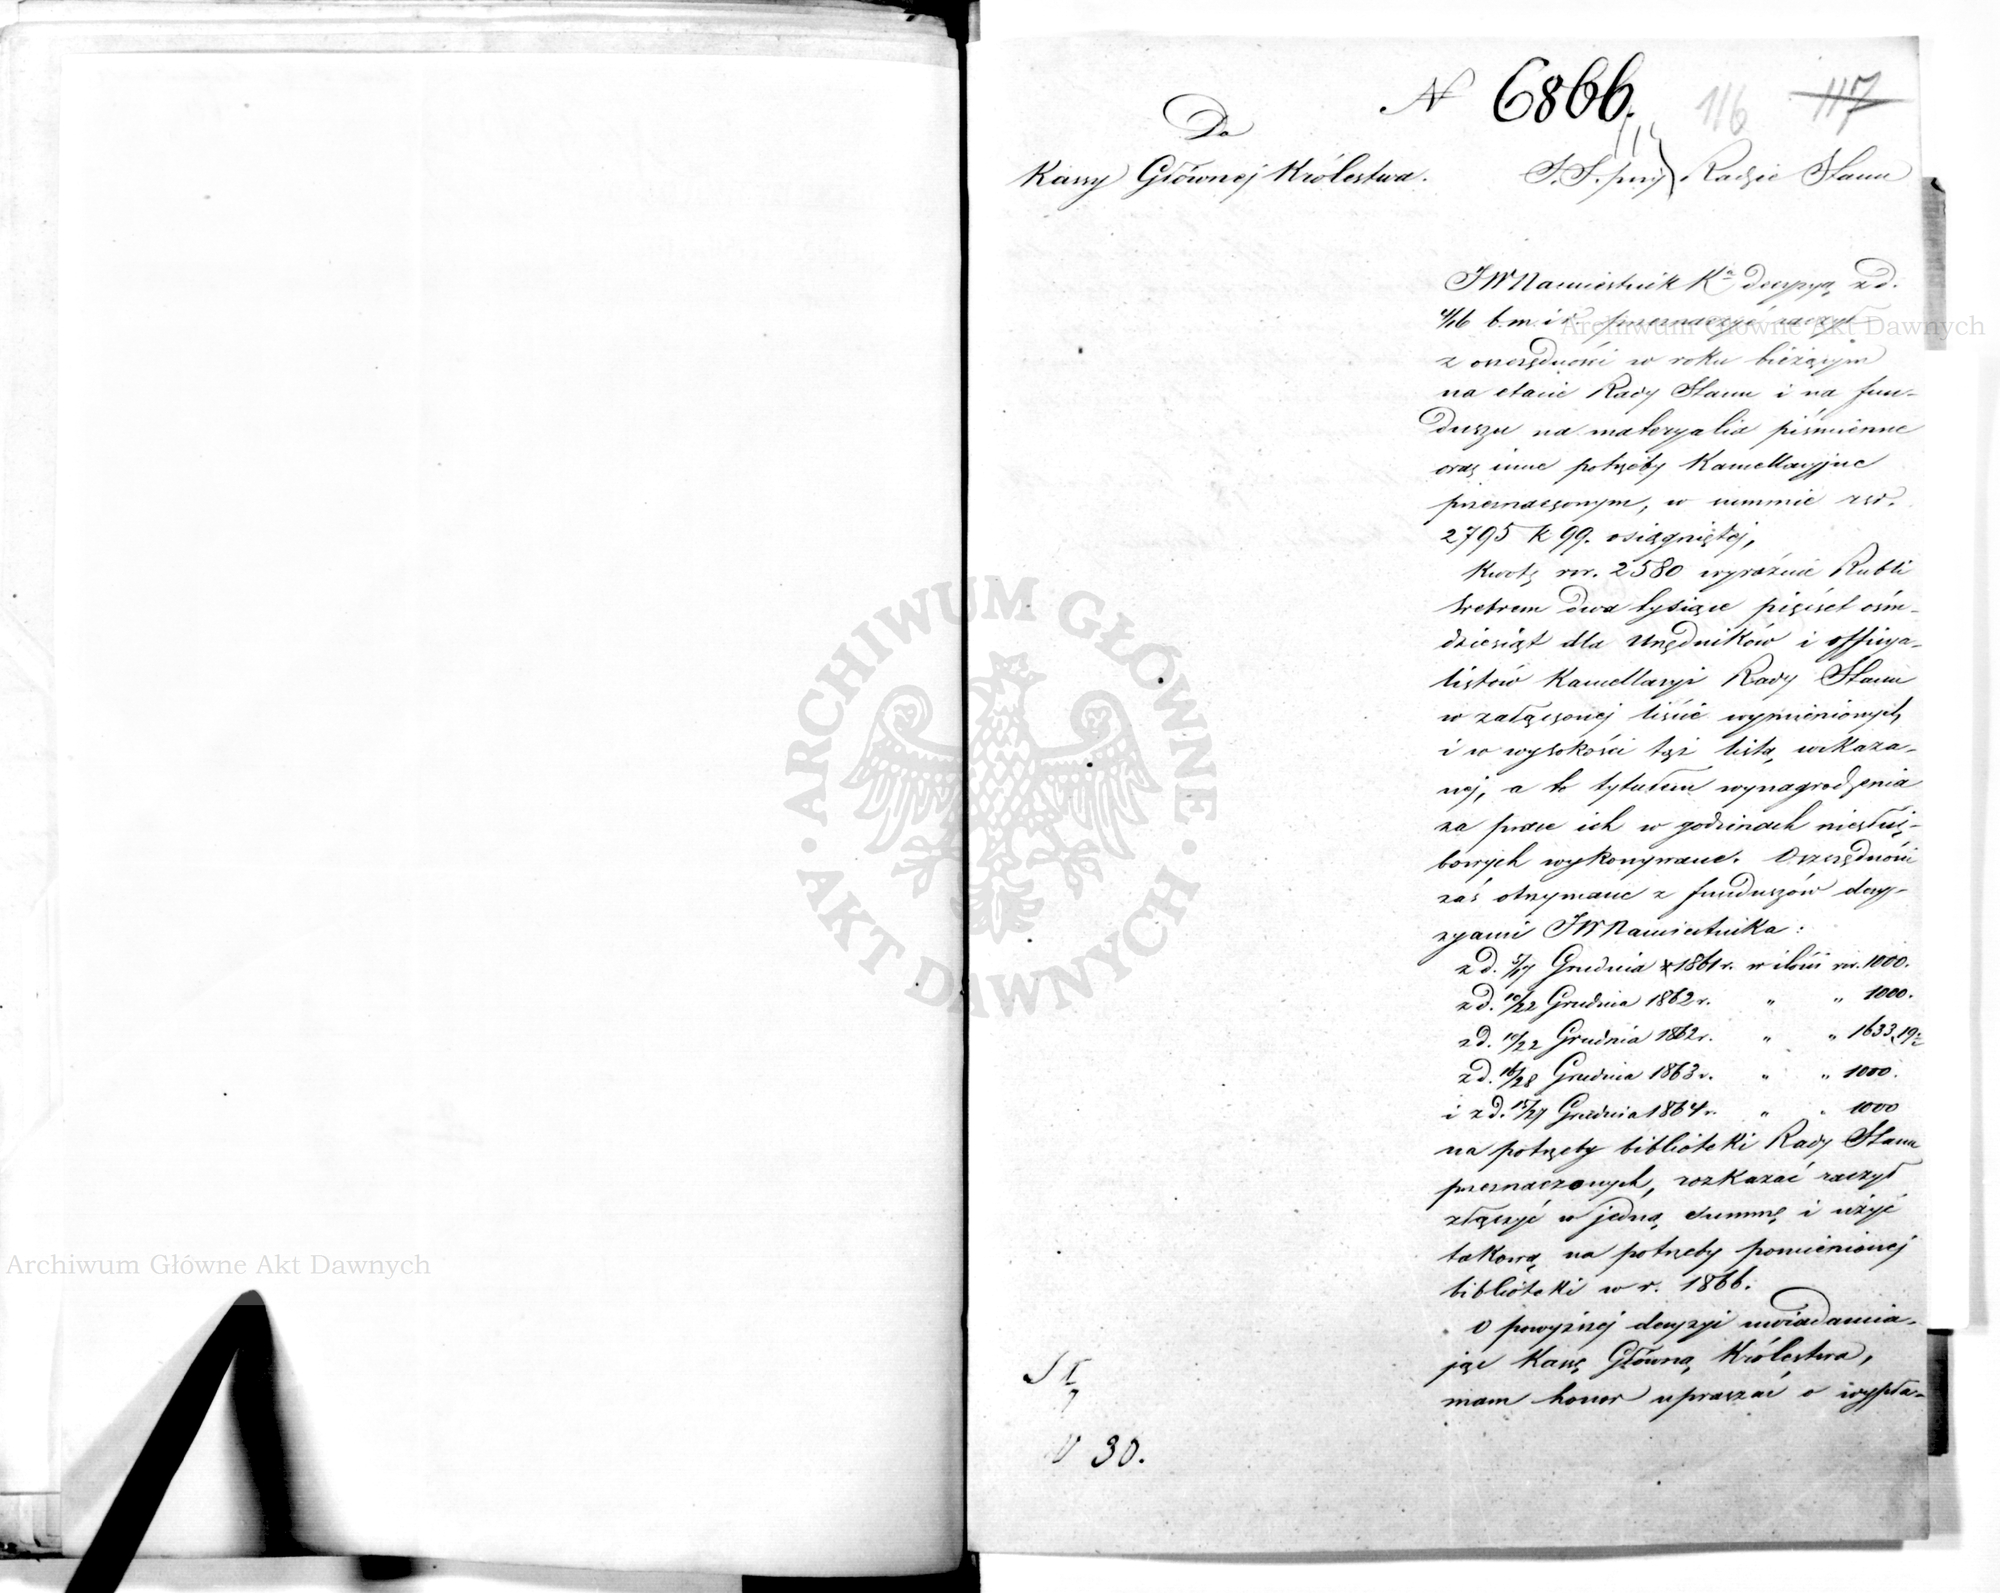 N 6866.
116 117
Do
Kassy Głównej Królestwa.
S. S. przy Radzie Stanu
JW Namiestnik Kа decyzyą z d.
4/16 b.m. i r. przeznaczyć raczył
z oszczędności w roku bieżącym
na etacie Rady Stanu i na fun-
duszu na materyalia piśmienne
oraz inne potrzeby Kancellaryjne
przeznaczonym, w summie rsr.
2795 k 99. osiągniętej,
Kwotę rsr. 2580 wyraźnie Rubli
srebrem dwa tysiące pięćset ośm-
dziesiąt dla Urzędników i officya-
listów Kancellaryi Rady Stanu
w załączonej liście wymienionych,
i w wysokości tąż listą wskaza-
nej, a to tytułem wynagrodzenia
za prace ich w godzinach niesłuż-
bowych wykonywane. Oszczędności
zaś otrzymane z funduszów decy-
zyami JW Namiestnika:
z d. 5/17 Grudnia 1861 r. w ilości rsr. 1000.
z d. 10/22 Grudnia 1862 r. " " 1000.
z d. 10/22 Grudnia 1862 r. " " 1633,19½
z d. 16/28 Grudnia 1863 r. " " 1000.
i z d. 15/27 Grudnia 1864 r. " " 1000
na potrzeby biblioteki Rady Stanu
przeznaczonych, rozkazać raczył
złączyć w jedną summę i użyć
takową na potrzeby pomienionej
biblioteki w r. 1866.
O powyższej decyzyi uwiadamia-
jąc Kassę Główną Królestwa,
mam honor upraszać o wypła-
30.
Archiwum Główne Akt Dawnych
Archiwum Główne Akt Dawnych
ARCHIWUM GŁÓWNE
AKT DAWNYCH